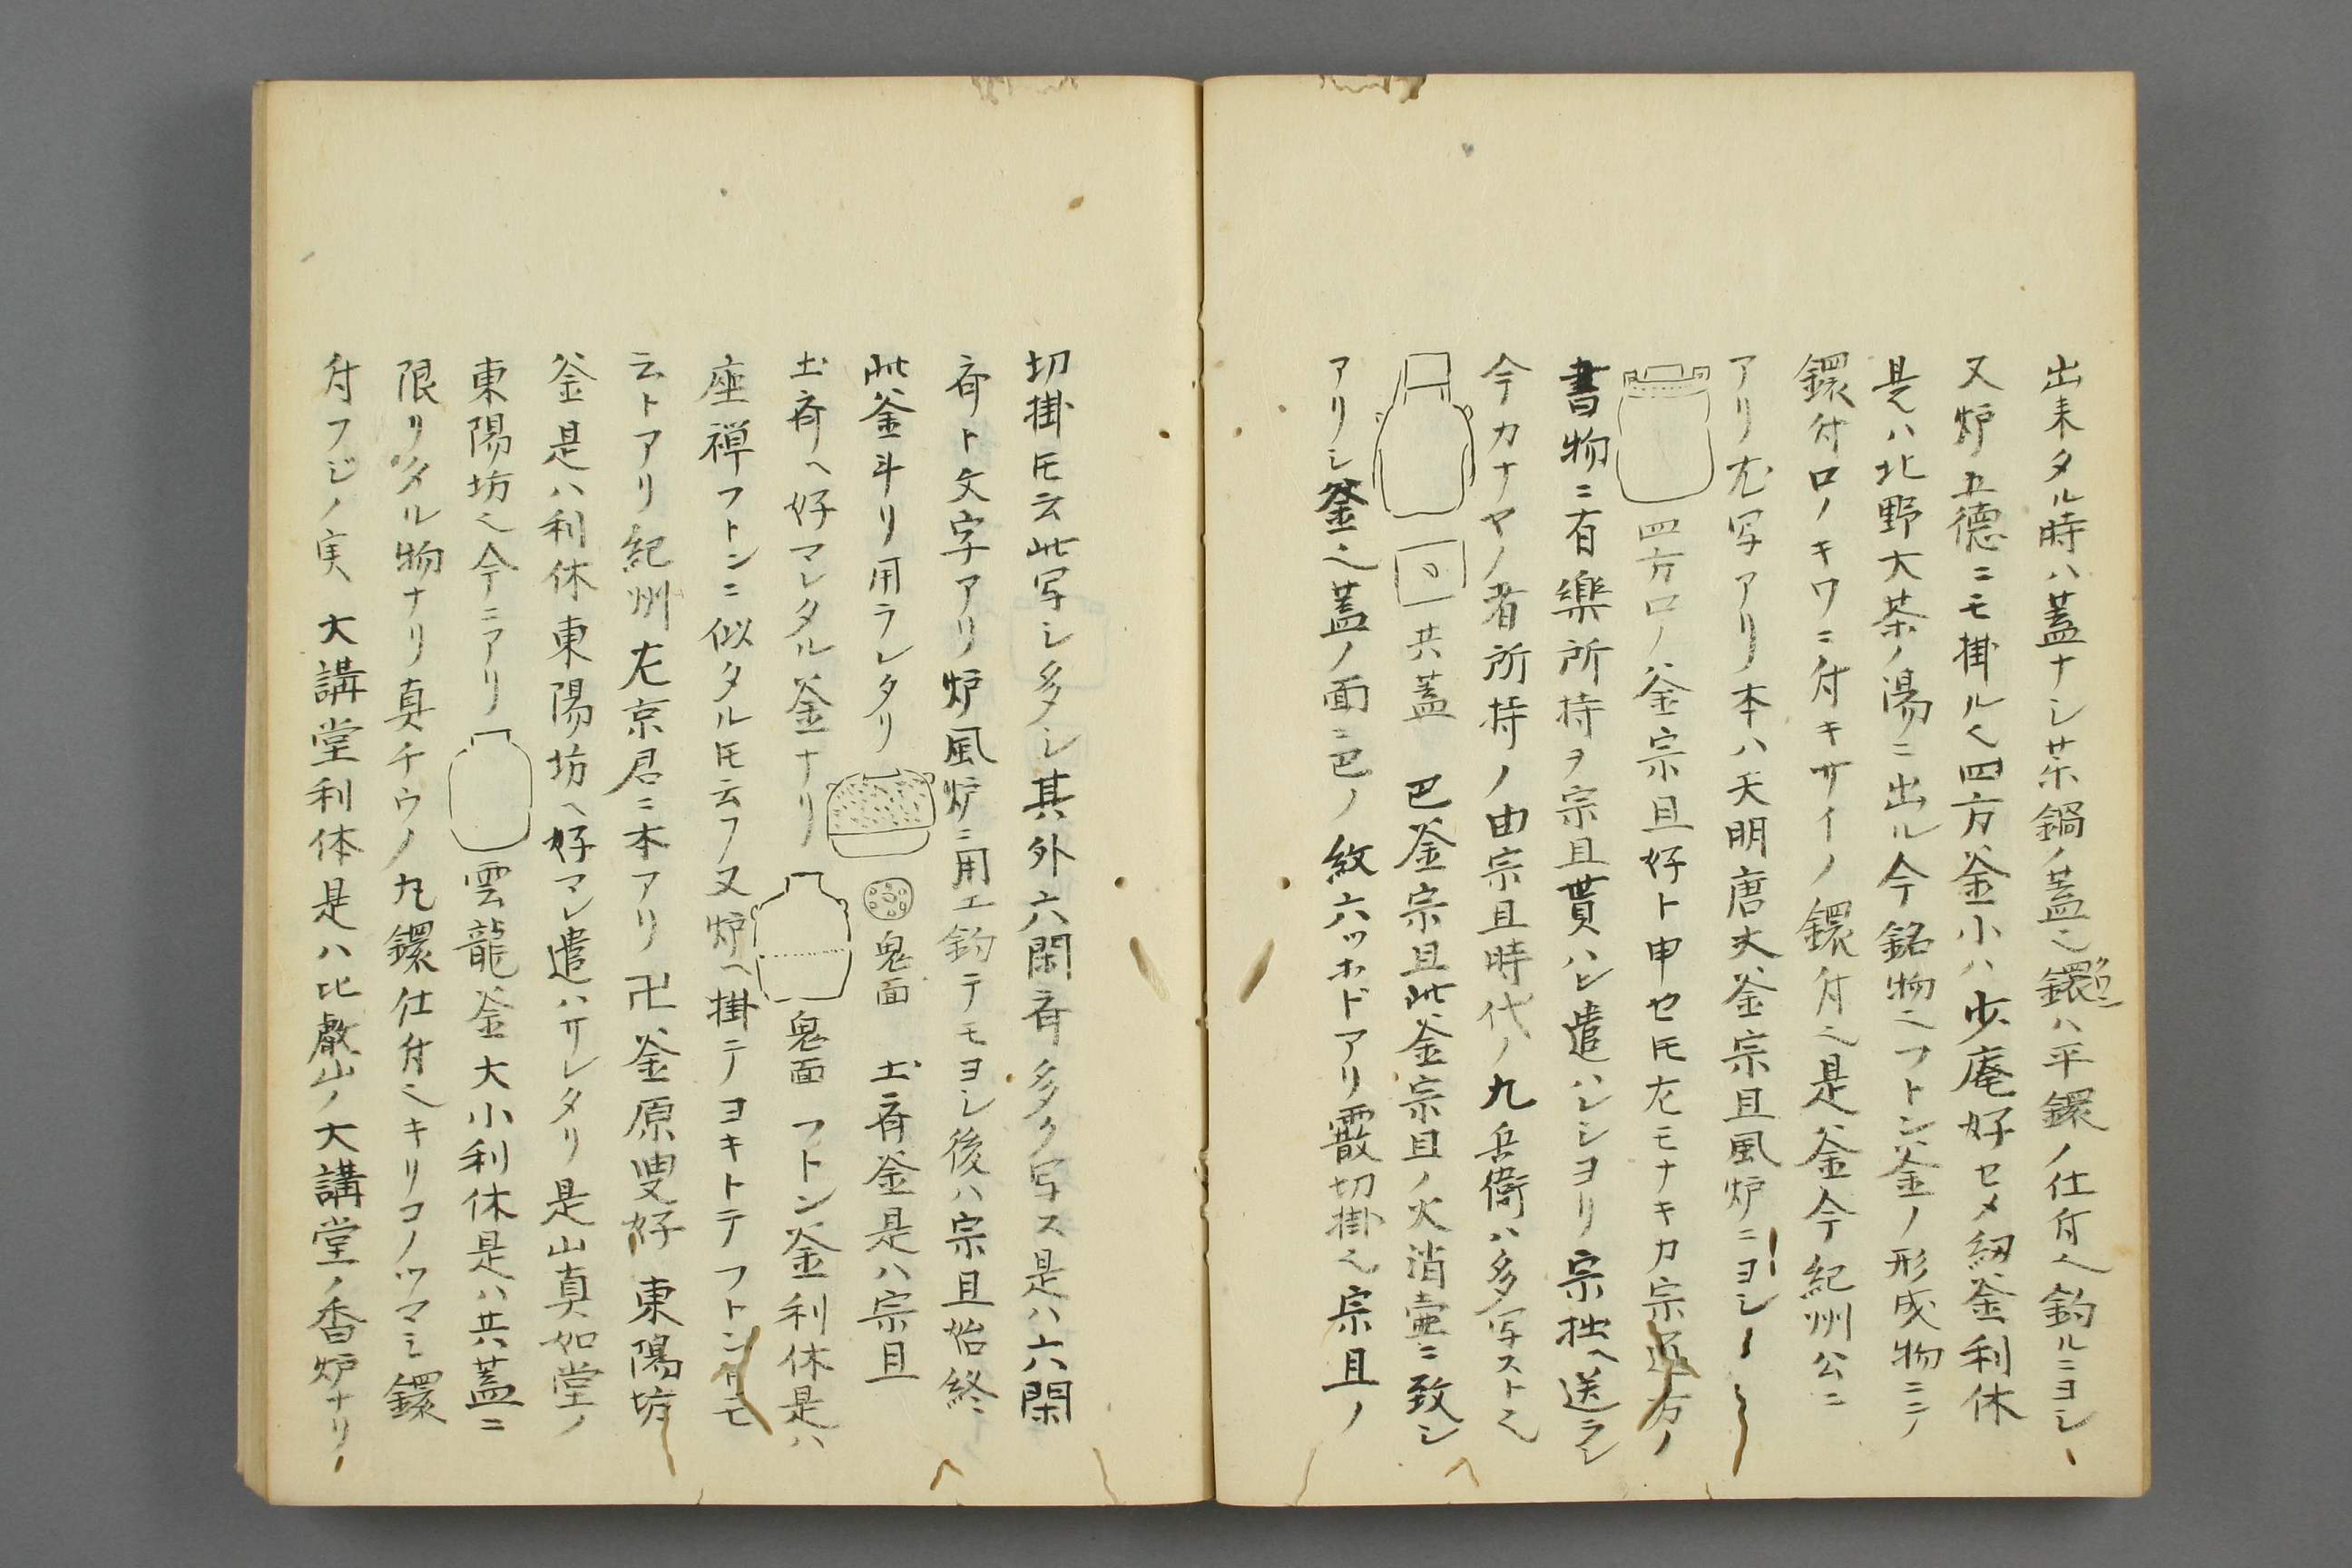 出来タル時ハ蓋ナシ茶鍋ノ蓋也鐶ハ平鐶ノ仕付也釣ルニヨシ
又炉五徳ニモ掛ル也四方釜小ハ少庵好セメ紐釜利休
是ハ北野大茶ノ湯ニ出ル今銘物也フトン釜ノ形成物ニノ
鐶付口ノキワニ付キサイノ鐶付也是釜今紀州公ニ
アリ尤写アリ本ハ天明唐犬釜宗旦風炉ニヨシ
四方口ノ釜宗旦好ト申セ𪜈左モナキカ宗 方ノ
書物ニ有楽所持ヲ宗旦貰ハヒ遣ハレシヨリ宗拙ヘ送ラレシ
今カナヤノ者所持ノ由宗旦時代ノ九兵衛ハ多写スト也
共蓋 巴釜宗旦此釜宗旦ノ火消壷ニ致シ
アリシ釜也蓋ノ面ニ巴ノ紋六ツホドアリ霰切掛也宗旦ノ
切掛𪜈云此写シ多シ其外六閑斎多ク写ス是ハ六閑
斎ト文字アリ炉風炉ニ用エ釣テモヨシ後ハ宗旦始終
此釜斗リ用ラレタリ 鬼面 土斎釜是ハ宗旦
土斎ヘ好マレタル釜ナリ 鬼面 フトン釜利休是ハ
座禅フトンニ似タル𪜈云フ又炉ヘ掛テヨキトテフトン 𪜈
云トアリ紀州左京君ニ本アリ卍釜原叟好 東陽坊
釜是ハ利休東陽坊ヘ好マレ遣ハサレタリ是山真如堂ノ
東陽坊也今ニアリ 雲龍釜大小利休是ハ共蓋ニ
限リタル物ナリ真チウノ丸鐶仕付也キリコノツマミ鐶
付フジノ実 大講堂利休是ハ比叡山ノ大講堂ノ香炉ナリ